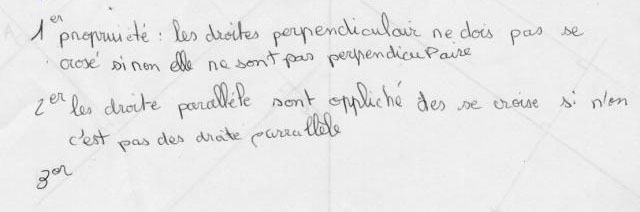 1er propriueté : les droites perpendiculair ne dois pas se
crosé sinon elle ne sont pas perpendiculaire
2er les droite parallèle sont oppliché des se croise si n'on
c'est pas des droite parrallèle
3er